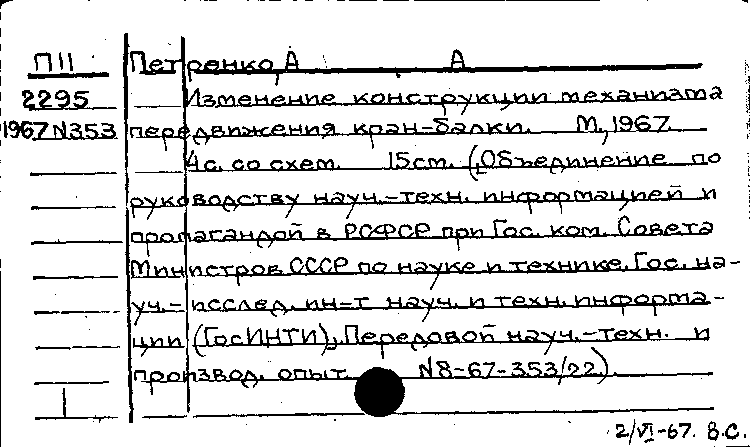 П11 Петренко, А А
2295 Изменение конструкции механизма
1967 N353 передвижения кран-балки. М, 1967
4с. со схем. 15см. (Объединение по
руководству науч.-техн. информацией и
пропагандой в РСФСР при Гос. ком. Совета
Министров СССР по науке и технике. Гос. на-
уч.-исслед. ин-т науч. и техн. информа-
ции (ГосИНТИ), Передовой науч.-техн. и
производ. опыт N8-67-353/22).
2/VI-67. В.С.